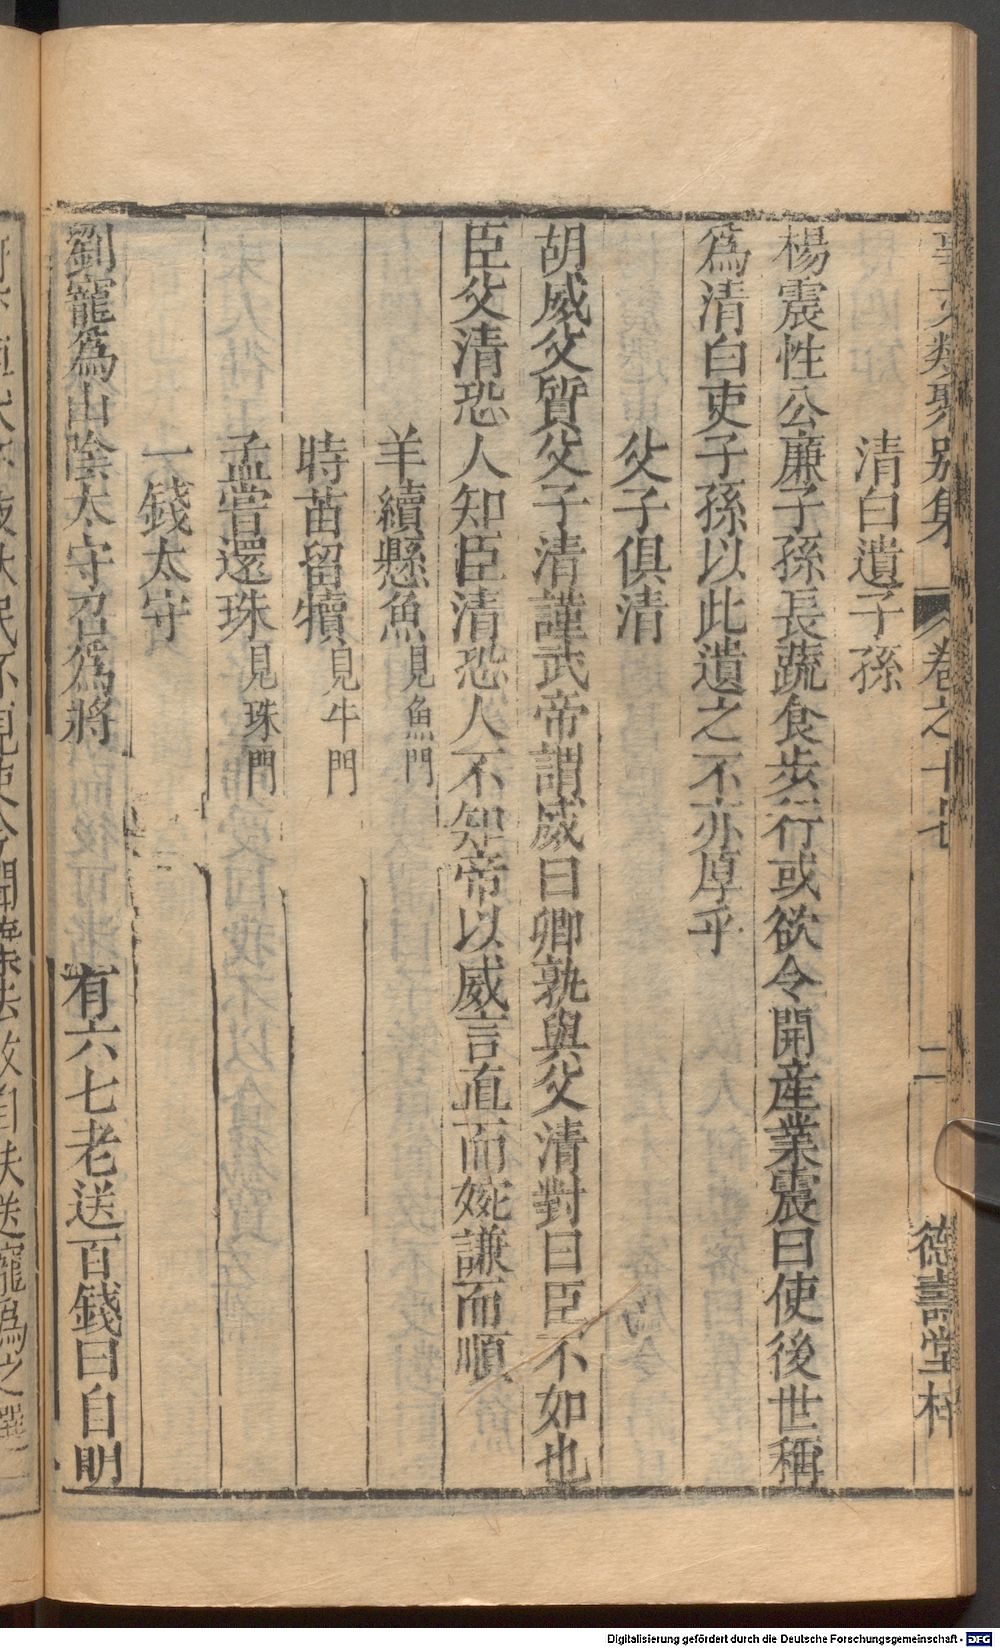 事文類聚別集 卷之十七 二 德壽堂梓
清白遺子孫
楊震性公廉子孫長蔬食步行或欲令開產業震曰使後世稱
爲清白吏子孫以此遺之不亦厚乎
父子俱清
胡威父質父子清謹武帝謂威曰卿孰與父清對曰臣不如也
臣父清恐人知臣清恐人不知帝以威言直而婉謙而順
羊續懸魚見魚門
時苗留犢見牛門
孟嘗還珠見珠門
一錢太守
劉寵爲山陰太守召爲將 有六七老送百錢曰自明
Digitalisierung gefördert durch die Deutsche Forschungsgemeinschaft - DFG